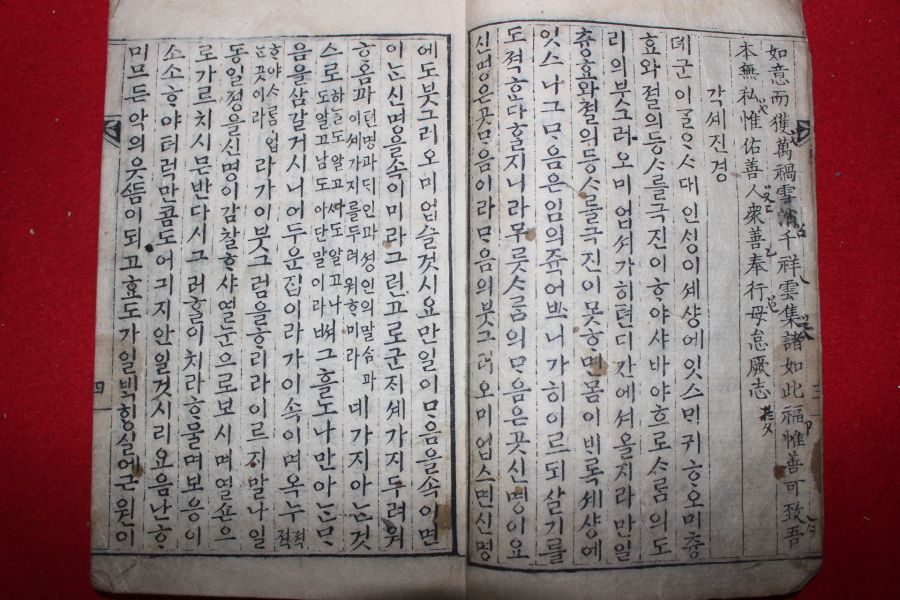 如意而獲萬禍雪消千祥雲集諸如此福惟善可致吾
本無私惟佑善人衆善奉行毋怠厥志
각세진경
뎨군이ᄀᆞᆯᄋᆞᄉᆞ대인싱이셰샹에잇스ᄆᆡ귀ᄒᆞ오미츙
효와졀의등ᄉᆞ를극진이ᄒᆞ야샤바야흐로ᄉᆞᄅᆞᆷ의도
리의붓그러오미업셔가히텬디간에셔올지라만일
츙효와졀의등ᄉᆞ를극진이못ᄒᆞ면몸이비록셰샹에
잇스나그ᄆᆞᄋᆞᆷ은임의쥭어ᄇᆞ니가히이르되살기를
도젹ᄒᆞ다ᄒᆞᆯ지니라무릇ᄉᆞᄅᆞᆷ의ᄆᆞᄋᆞᆷ은곳신명이요
신명은곳ᄆᆞᄋᆞᆷ이라ᄆᆞᄋᆞᆷ의붓그러오미업스면신명
에도붓그러오미업슬것시요만일이ᄆᆞᄋᆞᆷ을속이면
이ᄂᆞᆫ신명을속이미라그런고로군ᄌᆞㅣ세가지두려워
ᄒᆞ옴과
텬명과ᄃᆡ인과셩인의말숨과
이셰가지를두려워ᄒᆞ미라
네가지아ᄂᆞᆫ것
스로
하ᄂᆞᆯ도알고ᄯᅡ도알고나
도알고남도아단말이라
ᄡᅥ그홀노나만아ᄂᆞᆫᄆᆞ
음을삼갈거시니어두운집이라가이속이며옥누
ᄒᆞ야ᄉᆞᄅᆞᆷ업
ᄂᆞᆫ곳이라
라가이붓그럼을ᄒᆞ리라이르지말나일
동일졍을신명이감찰ᄒᆞ샤열눈으로보시며열손으
로가르치시ᄆᆞᆫ반다시그러ᄒᆞᆯ이치라ᄒᆞ물며보응이
소소ᄒᆞ야터럭만콤도어긔지안일것시리요음난ᄒᆞ
미ᄆᆞ든악의웃듬이되고효도가일ᄇᆡᆨᄒᆡᆼ실에군원이